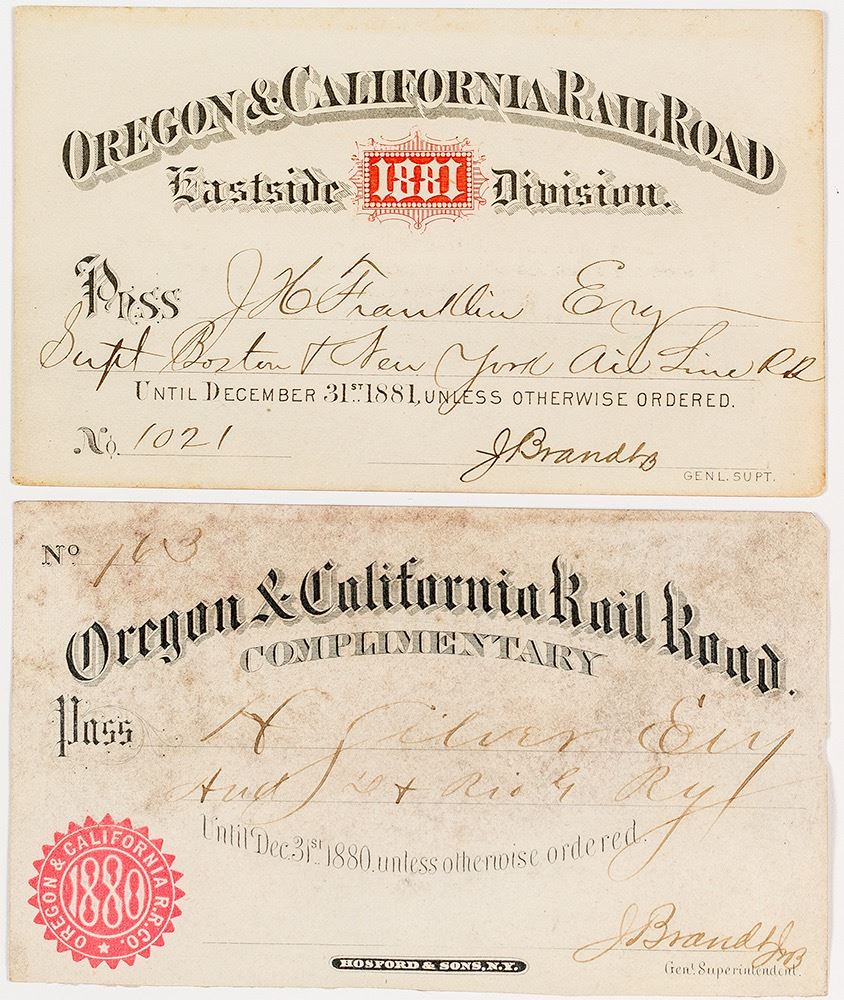 OREGON & CALIFORNIA RAIL ROAD
Eastside 1881 Division.
Pass J H Franklin Esq
Supt Boston & New York Air Line RR
UNTIL DECEMBER 31ST 1881, UNLESS OTHERWISE ORDERED.
No. 1021 J Brandt
GENL. SUPT.
No 163
Oregon & California Rail Road.
COMPLIMENTARY
Pass H Gilver Esq
Aud D & Rio G Ry
Until Dec. 31st 1880, unless otherwise ordered.
OREGON & CALIFORNIA R.R. CO. ★
1880
J Brandt Jr
Genl. Superintendent.
HOSFORD & SONS, N.Y.